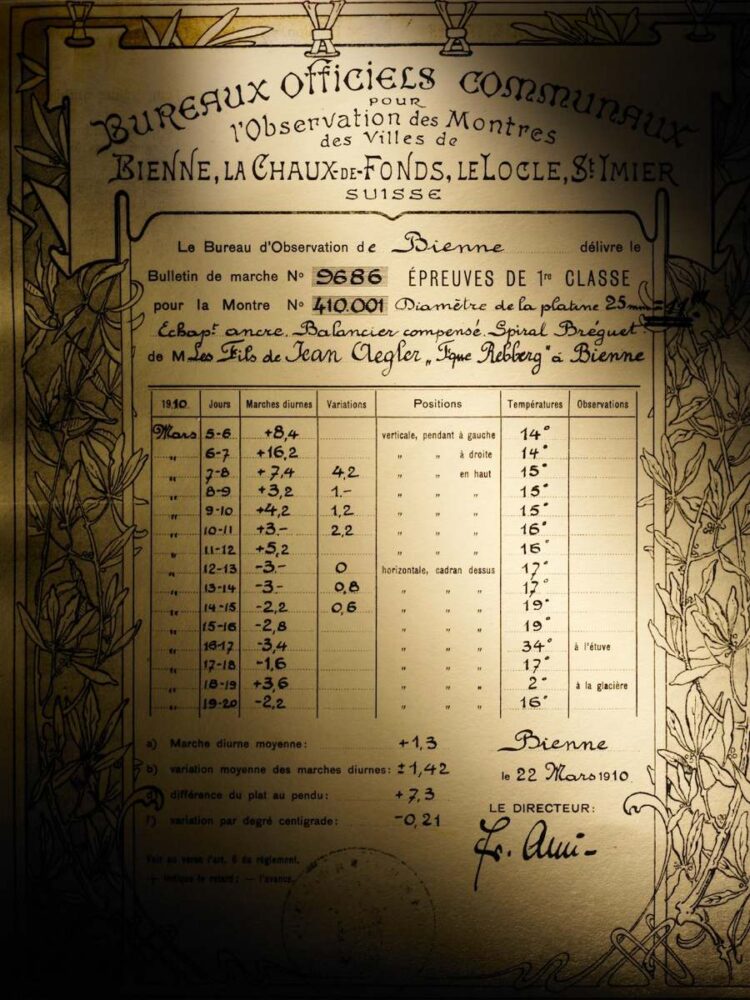 BUREAUX OFFICIELS COMMUNAUX
POUR
l'Observation des Montres
des Villes de
BIENNE, LA CHAUX-DE-FONDS, LE LOCLE, St IMIER
SUISSE
Le Bureau d'Observation de Bienne délivre le
Bulletin de marche No 9686 ÉPREUVES DE 1re CLASSE
pour la Montre No 410.001 Diamètre de la platine 25mm = 11'''
Échapt ancre. Balancier compensé. Spiral Bréguet
de M Les Fils de Jean Aegler „Fque Rebberg" à Bienne
1910. Jours Marches diurnes Variations Positions Températures Observations
Mars 5-6 +8,4 verticale, pendant à gauche 14°
„ 6-7 +16,2 „ „ à droite 14°
„ 7-8 +7,4 4,2 „ „ en haut 15°
„ 8-9 +3,2 1.- „ „ „ 15°
„ 9-10 +4,2 1,2 „ „ „ 15°
„ 10-11 +3.- 2,2 „ „ „ 16°
„ 11-12 +5,2 „ „ „ 16°
„ 12-13 -3.- 0 horizontale, cadran dessus 17°
„ 13-14 -3.- 0,8 „ „ „ 17°
„ 14-15 -2,2 0,6 „ „ „ 19°
„ 15-16 -2,8 „ „ „ 19°
„ 16-17 -3,4 „ „ „ 34° à l'étuve
„ 17-18 -1,6 „ „ „ 17°
„ 18-19 +3,6 „ „ „ 2° à la glacière
„ 19-20 -2,2 „ „ „ 16°
a) Marche diurne moyenne: +1,3
b) variation moyenne des marches diurnes: ±1,42
différence du plat au pendu: +7,3
f) variation par degré centigrade: -0,21
Bienne
le 22 Mars 1910.
LE DIRECTEUR:
Voir au verso l'art. 6 du règlement.
+ indique le retard; — l'avance.